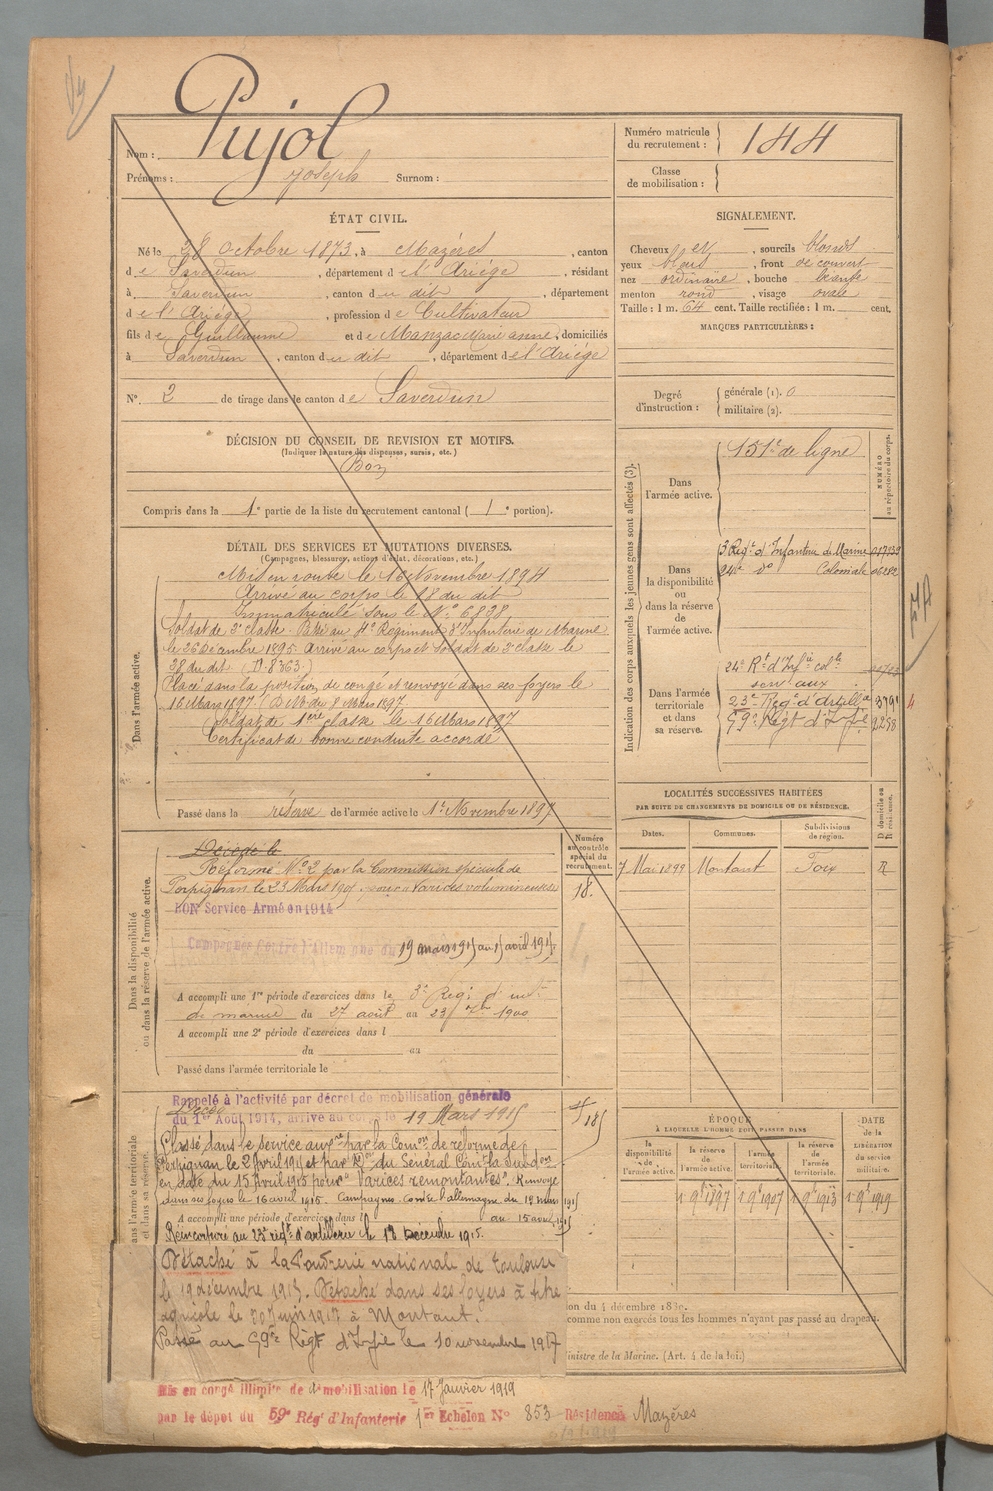 Pujol
Nom :
Prénoms : Joseph Surnom :
Numéro matricule du recrutement : 144
Classe de mobilisation :
ÉTAT CIVIL.
Né le 28 Octobre 1873, à Mazères, canton
de Saverdun, département de l'Ariége, résidant
à Saverdun, canton du dit, département
de l'Ariége, profession de Cultivateur
fils de Guillaume et de Manzac Marie anne, domiciliés
à Saverdun, canton du dit, département de l'Ariége
N°. 2 de tirage dans le canton de Saverdun
SIGNALEMENT.
Cheveux et, sourcils blonds
yeux bleus, front découvert
nez ordinaire, bouche
menton rond, visage ovale
Taille : 1 m. 64 cent. Taille rectifiée : 1 m. cent.
MARQUES PARTICULIÈRES :
Degré d'instruction :
générale (1). 0
militaire (2).
DÉCISION DU CONSEIL DE REVISION ET MOTIFS.
(Indiquer la nature des dispenses, sursis, etc.)
Bon
Compris dans la 1e partie de la liste du recrutement cantonal ( 1e portion).
DÉTAIL DES SERVICES ET MUTATIONS DIVERSES.
(Campagnes, blessures, actions d'éclat, décorations, etc.)
Dans l'armée active.
Mis en route le 16 Novembre 1894
Arrivé au corps le 18 du dit
Immatriculé sous le N° 6898
Soldat de 2e classe. Passé au 4e Régiment d'Infanterie de Marine
le 26 Décembre 1895. Arrivé au corps et Soldat de 2e classe le
28 du dit (N. 8363.)
Placé dans la position de congé et renvoyé dans ses foyers le
16 Mars 1897. (D. M. du 8 Mars 1897.
Soldat de 1ère classe le 16 Mars 1897
Certificat de bonne conduite accordé
Passé dans la réserve de l'armée active le 1er Novembre 1897
Indication des corps auxquels les jeunes gens sont affectés (3).
NUMÉRO au répertoire du corps.
Dans l'armée active.
151e de ligne
Dans la disponibilité ou dans la réserve de l'armée active.
3 Régt d'Infanterie de Marine 017139
24e do Coloniale 06282
Dans l'armée territoriale et dans sa réserve.
24e Rt d'Infie cole
serv aux
23e Régt d'Artillie 3791
59e Régt d'Infie 2258
LOCALITÉS SUCCESSIVES HABITÉES
PAR SUITE DE CHANGEMENTS DE DOMICILE OU DE RÉSIDENCE.
D domicile ou R résidence.
Dates. Communes. Subdivisions de région.
7 Mai 1899 Montaut Foix R
Numéro au contrôle spécial du recrutement.
18.
Dans la disponibilité ou dans la réserve de l'armée active.
Décédé le
Réformé No 2 par la Commission spéciale de
Perpignan le 23 Mars 1901 pour varices volumineuses
BON Service Armé en 1914
Campagne Contre l'Allemagne du 19 mars 1915 au 15 avril 1915.
A accompli une 1re période d'exercices dans le 3e Régt d'inf.
de marine du 27 août au 23 7bre 1900
A accompli une 2e période d'exercices dans l
du au
Passé dans l'armée territoriale le
Rappelé à l'activité par décret de mobilisation générale
du 1er Août 1914, arrivé au corps le 19 Mars 1915
Classé dans le service auxre par la Comon de réforme de
Perpignan le 2 Avril 1915 et par Don du Général Comt la Subdon
en date du 15 Avril 1915 pour "Varices remontantes" Renvoyé
dans ses foyers le 16 avril 1915. Campagnes Contre l'allemagne du 19 mars 1915
A accompli une période d'exercices dans l au 15 avril 1915
Réincorporé au 23e régt d'artillerie le 18 Décembre 1915.
Détaché à la Poudrerie nationale de Toulouse
le 19 décembre 1915. Détaché dans ses foyers à titre
agricole le 30 Juin 1917 à Montaut.
Passé au 59e Régt d'Infie le 10 novembre 1917
ÉPOQUE
À LAQUELLE L'HOMME DOIT PASSER DANS
DATE de la LIBÉRATION du service militaire.
la disponibilité de l'armée active.
la réserve de l'armée active.
l'armée territoriale.
la réserve de l'armée territoriale.
1 9bre 1897 1 9bre 1907 1 9bre 1913 1 9bre 1919
comme non exercés tous les hommes n'ayant pas passé au drapeau.
inistre de la Marine. (Art. 4 de la loi.)
Mis en congé illimité de démobilisation le 17 Janvier 1919
par le dépôt du 59e Régt d'Infanterie 1er Echelon N° 853 Résidence Mazères